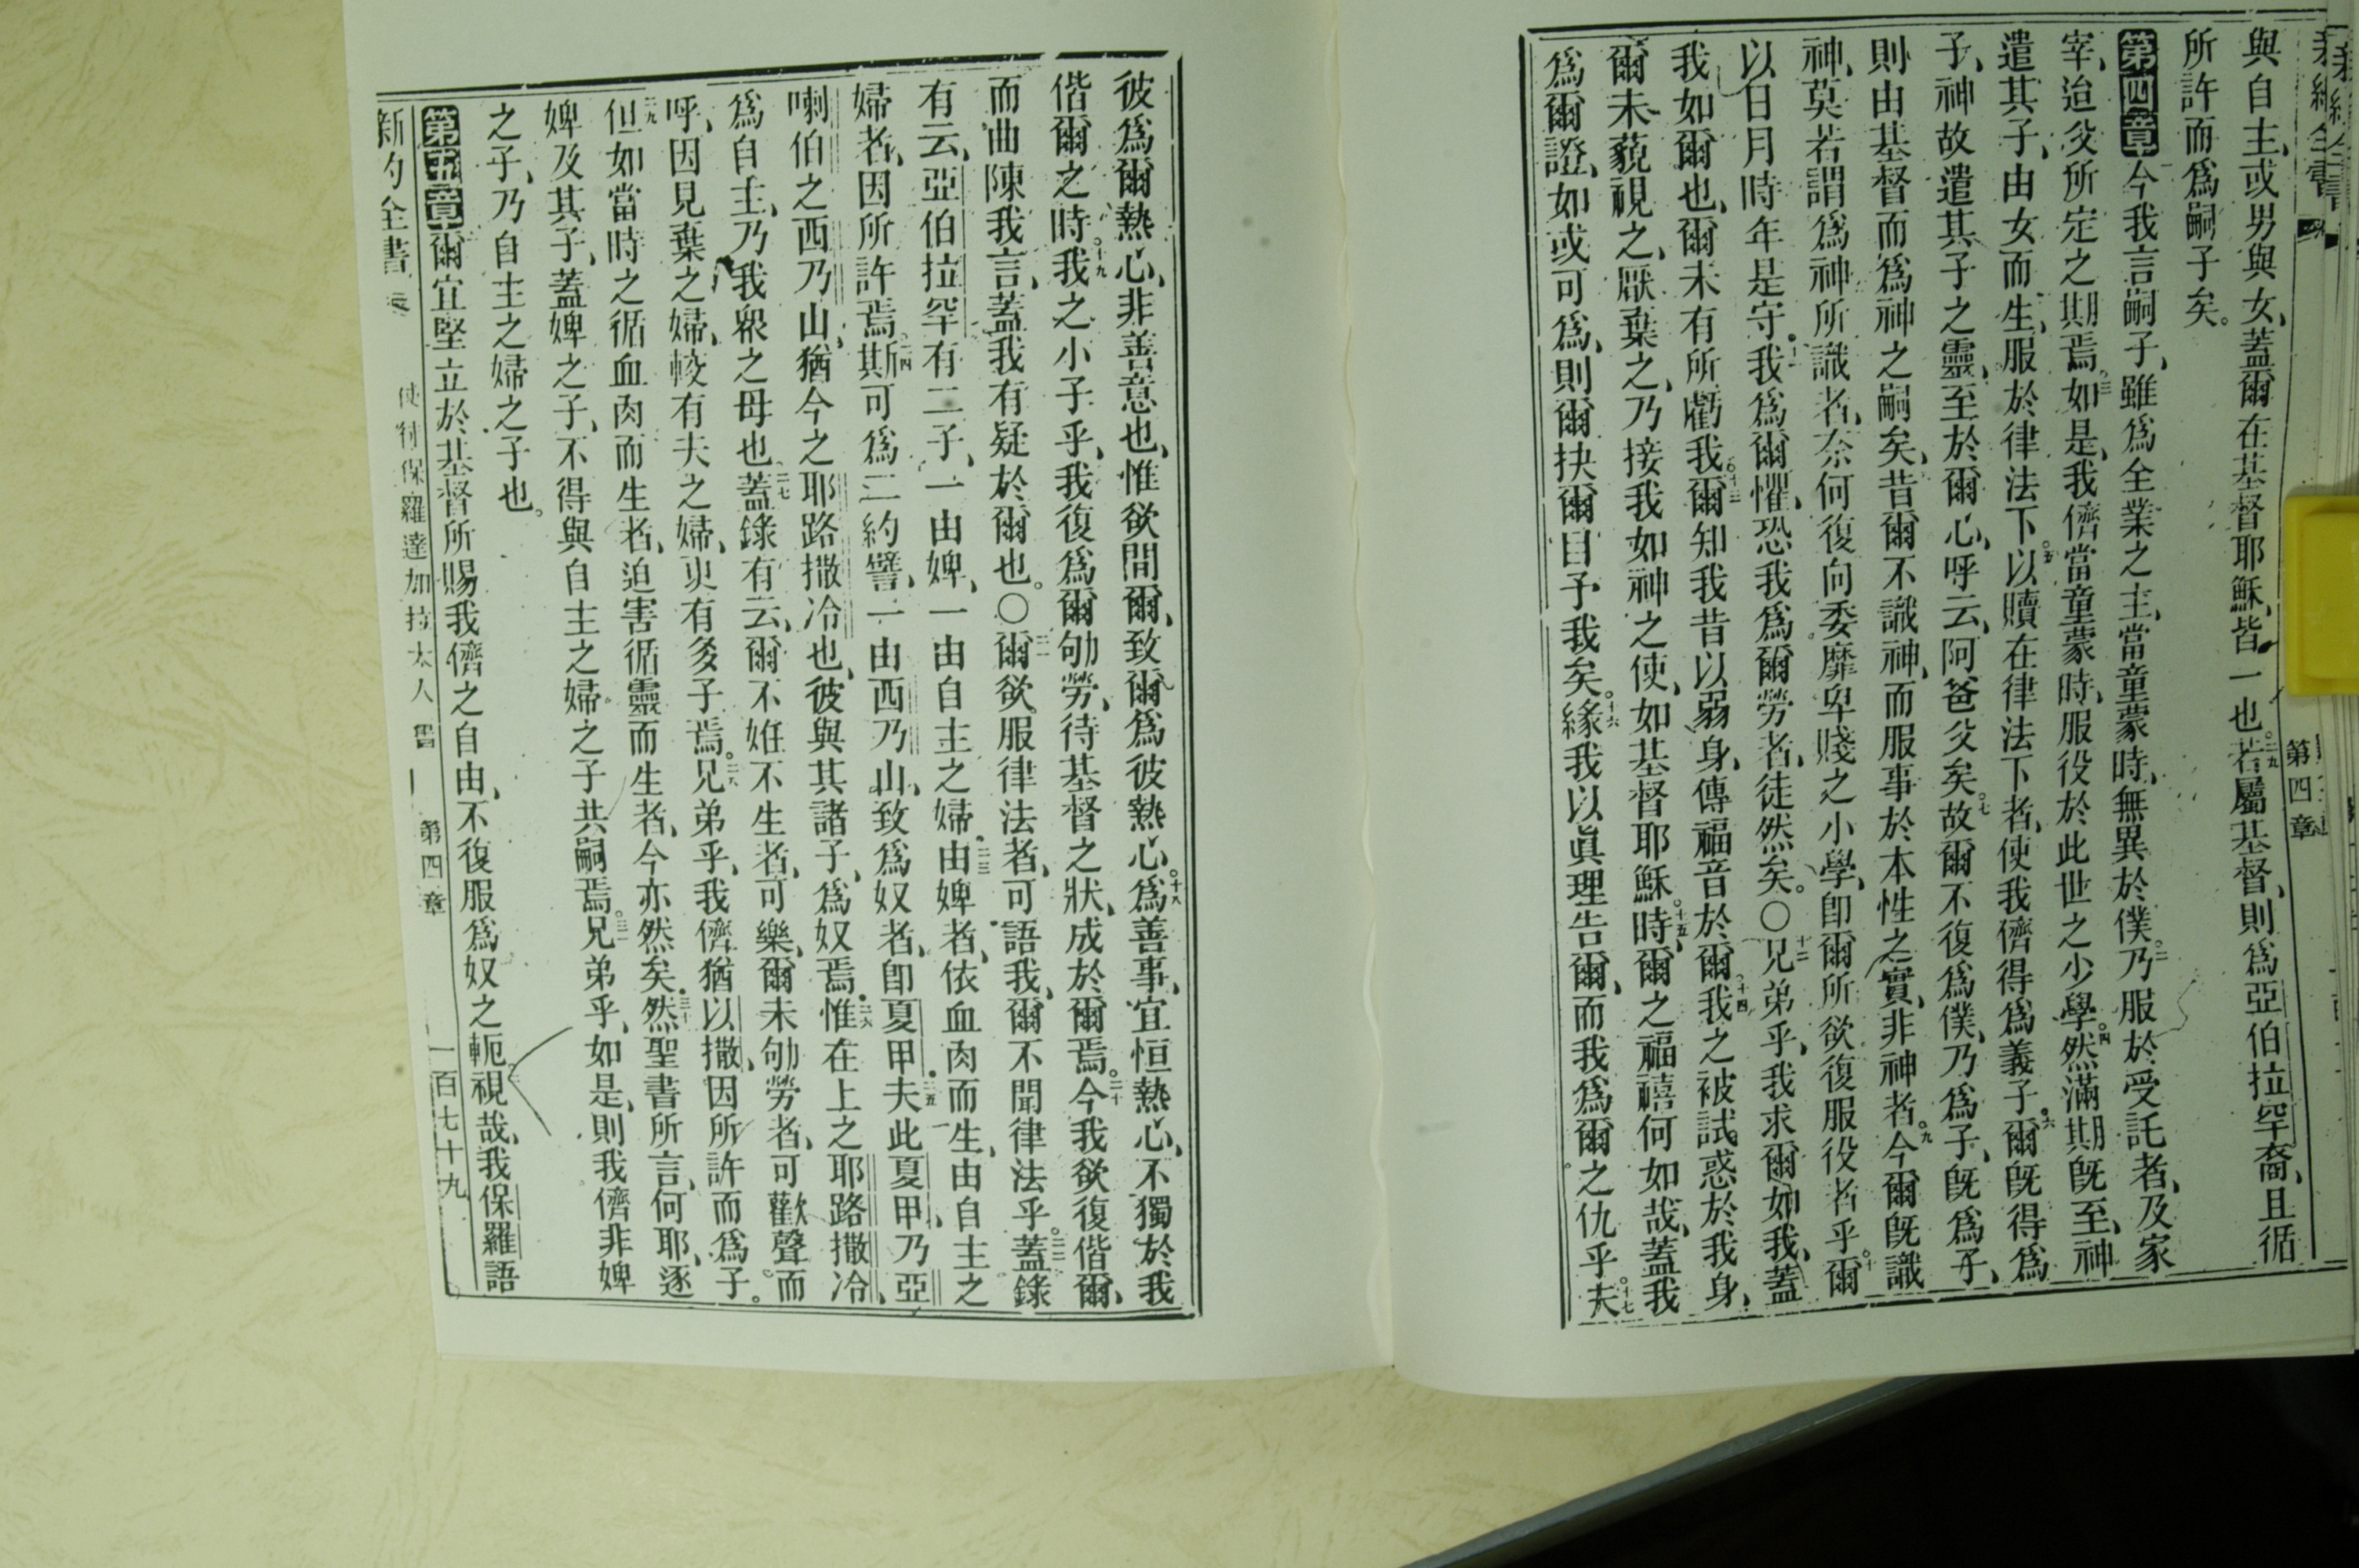 與自主、或男與女、蓋爾在基督耶穌、皆一也。二九若屬基督、則爲亞伯拉罕裔、且循
所許而爲嗣子矣。
第四章今我言嗣子、雖爲全業之主、當童蒙時、無異於僕。二乃服於受託者、及家
宰、迨父所定之期焉。三如是、我儕當童蒙時、服役於此世之小學。四然滿期旣至、神
遣其子、由女而生、服於律法下。五以贖在律法下者、使我儕得爲義子。六爾旣得爲
子、神故遣其子之靈、至於爾心、呼云、阿爸父矣。七故爾不復爲僕、乃爲子、旣爲子、
則由基督而爲神之嗣矣、昔爾不識神、而服事於本性之實、非神者。九今爾旣識
神、莫若謂爲神所識者、奈何復向委靡卑賤之小學、卽爾所欲復服役者乎。十爾
以日月時年是守。十一我爲爾懼、恐我爲爾勞者、徒然矣。〇十二兄弟乎、我求爾如我、蓋
我如爾也、爾未有所虧我。十三爾知我昔以弱身、傳福音於爾。十四我之被試惑於我身、
爾未藐視之、厭棄之、乃接我如神之使、如基督耶穌。十五時、爾之福禧何如哉、蓋我
爲爾證、如或可爲、則爾抉爾目予我矣。十六緣我以眞理吿爾、而我爲爾之仇乎。十七夫
第四章
彼爲爾熱心、非善意也、惟欲間爾、致爾爲彼熱心。十八爲善事、宜恒熱心、不獨於我
偕爾之時。十九我之小子乎、我復爲爾劬勞、待基督之狀、成於爾焉。二十今我欲復偕爾、
而曲陳我言、蓋我有疑於爾也。〇二一爾欲服律法者、可語我、爾不聞律法乎。二二蓋錄
有云、亞伯拉罕有二子、一由婢、一由自主之婦。二三由婢者、依血肉而生、由自主之
婦者、因所許焉。二四斯可爲二約譬、一由西乃山、致爲奴者、卽夏甲。二五夫此夏甲、乃亞
喇伯之西乃山、猶今之耶路撒冷也、彼與其諸子、爲奴焉。二六惟在上之耶路撒冷、
爲自主、乃我衆之母也。二七蓋錄有云、爾不姙不生者、可樂、爾未劬勞者、可歡聲而
呼、因見棄之婦、較有夫之婦、更有多子焉。二八兄弟乎、我儕猶以撒、因所許而爲子。
二九但如當時之循血肉而生者、迫害循靈而生者、今亦然矣。三十然聖書所言、何耶、逐
婢及其子、蓋婢之子、不得與自主之婦。之子共嗣焉。三一兄弟乎、如是、則我儕非婢
之子、乃自主之婦之子也。
第五章爾宜堅立於基督所賜我儕之自由、不復服爲奴之軛。二視哉、我保羅語
新約全書 使徒保羅達加拉太人書 第四章 一百七十九